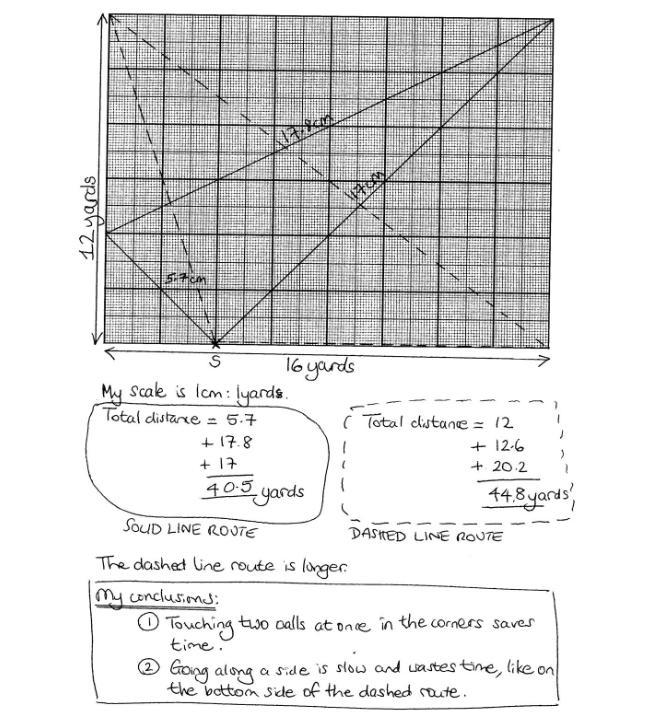 17.8cm
17cm
12 yards
5.7cm
S
16 yards
My scale is 1cm: 1yards.
Total distance = 5.7
+ 17.8
+ 17
40.5 yards
SOLID LINE ROUTE
Total distance = 12
+ 12.6
+ 20.2
44.8 yards
DASHED LINE ROUTE
The dashed line route is longer.
My conclusions:
① Touching two walls at once in the corners saves
time.
② Going along a side is slow and wastes time, like on
the bottom side of the dashed route.